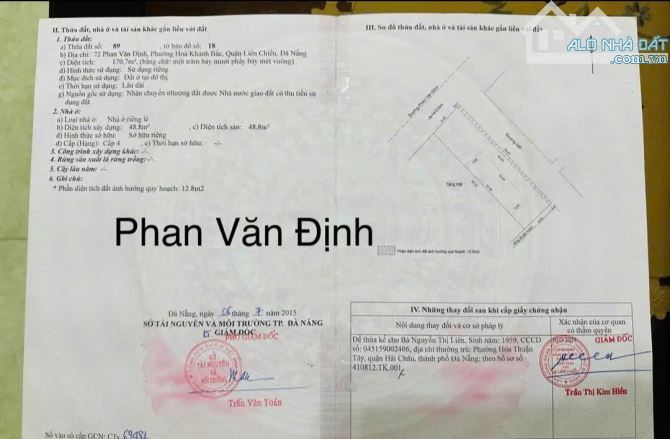 II. Thửa đất, nhà ở và tài sản khác gắn liền với đất
1. Thửa đất:
a) Thửa đất số: 89 , tờ bản đồ số: 18
b) Địa chỉ: 72 Phan Văn Định, Phường Hoà Khánh Bắc, Quận Liên Chiểu, Đà Nẵng
c) Diện tích: 170,7m², (bằng chữ: một trăm bảy mươi phẩy bảy mét vuông)
d) Hình thức sử dụng: Sử dụng riêng
đ) Mục đích sử dụng: Đất ở tại đô thị
e) Thời hạn sử dụng: Lâu dài
g) Nguồn gốc sử dụng: Nhận chuyển nhượng đất được Nhà nước giao đất có thu tiền sử
dụng đất
2. Nhà ở:
a) Loại nhà ở: Nhà ở riêng lẻ
b) Diện tích xây dựng: 48,8m² , c) Diện tích sàn: 48,8m²
d) Hình thức sở hữu: Sở hữu riêng
đ) Cấp (Hạng): Cấp 4 , e) Thời hạn sở hữu: -/-
3. Công trình xây dựng khác: -/-
4. Rừng sản xuất là rừng trồng: -/-
5. Cây lâu năm: -/-
6. Ghi chú:
* Phần diện tích đất ảnh hưởng quy hoạch: 12.8m2
III. Sơ đồ thửa đất, nhà ở và tài sản khác gắn liền với đất
ALO NHÀ ĐẤT
.com.vn
Đường Phan Văn Định
Đường kiệt
Phan Văn Định
Đà Nẵng, ngày 06 tháng 7 năm 2015
SỞ TÀI NGUYÊN VÀ MÔI TRƯỜNG TP. ĐÀ NẴNG
GIÁM ĐỐC
PHÓ GIÁM ĐỐC
SỞ
TÀI NGUYÊN
VÀ
MÔI TRƯỜNG
Trần Văn Toán
Số vào sổ cấp GCN: CTs 69481
IV. Những thay đổi sau khi cấp giấy chứng nhận
Nội dung thay đổi và cơ sở pháp lý
Xác nhận của cơ quan
có thẩm quyền
Để thừa kế cho Bà Nguyễn Thị Liên, Sinh năm: 1959, CCCD
số: 045159002406, địa chỉ thường trú: Phường Hòa Thuận
Tây, quận Hải Châu, thành phố Đà Nẵng; theo hồ sơ số
410812.TK.001
GIÁM ĐỐC
Trần Thị Kim Hiền